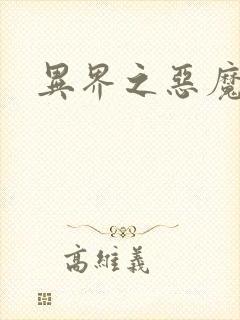 異界之惡魔
高維義